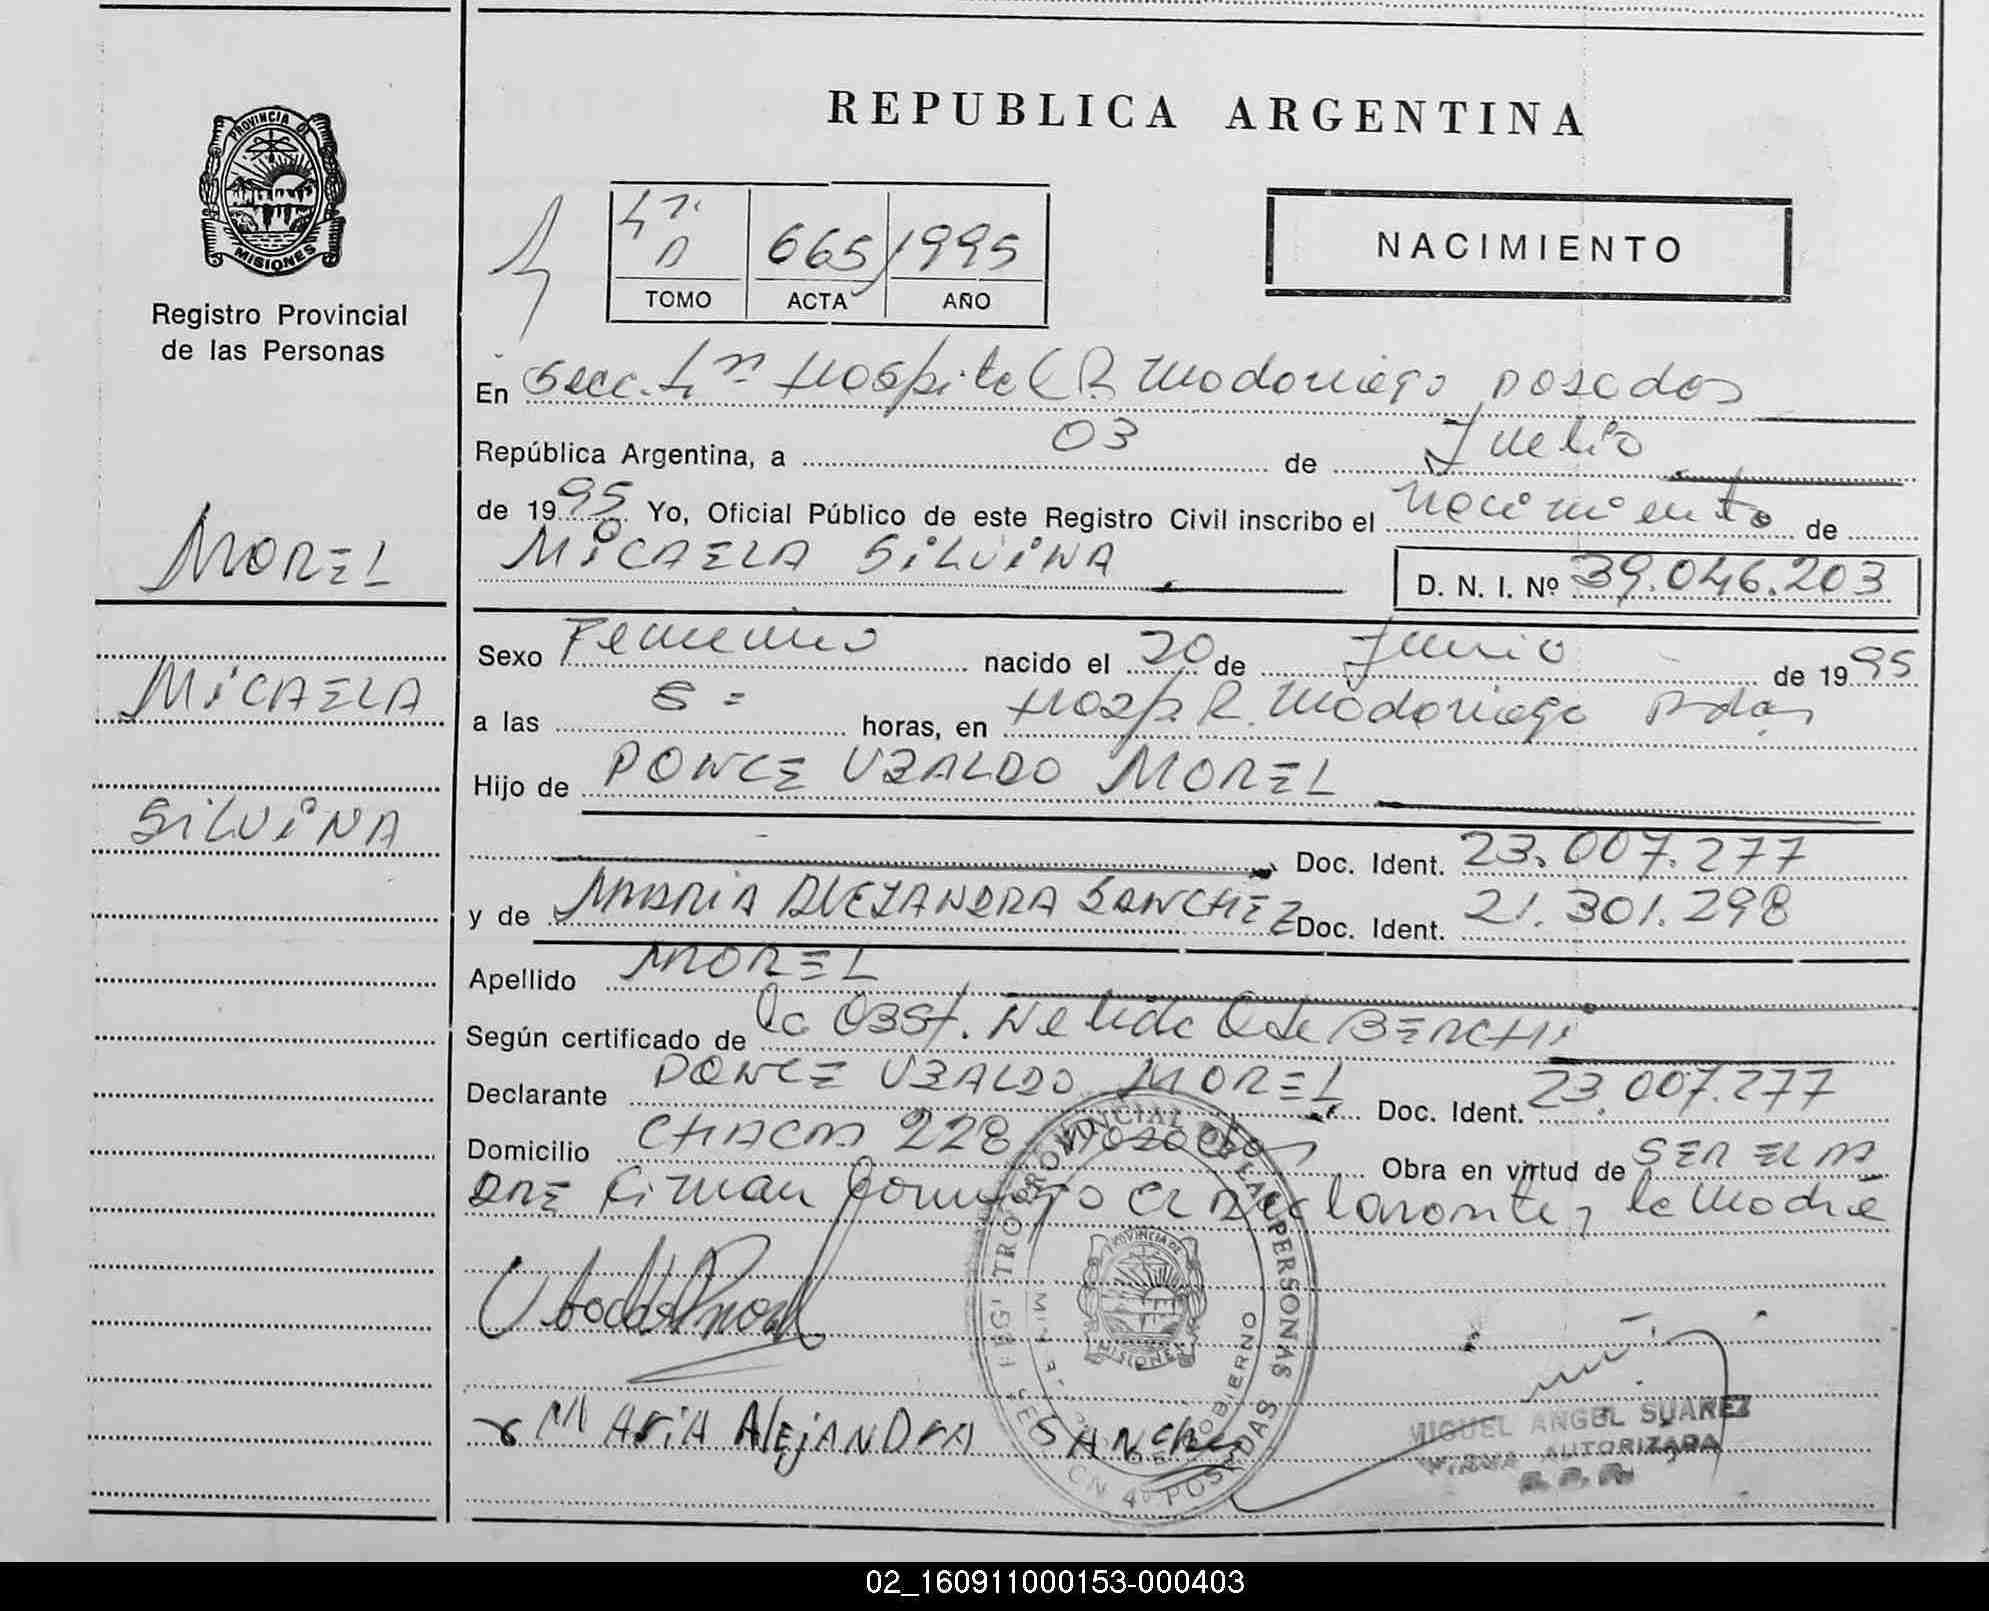 REPUBLICA ARGENTINA
PROVINCIA DE
MISIONES
Registro Provincial
de las Personas
4ta D 665 1995
TOMO ACTA AÑO
NACIMIENTO
En Secc. 4ta Hospital R Madariaga posadas
República Argentina, a 03 de Julio
de 1995 Yo, Oficial Público de este Registro Civil inscribo el nacimiento de
MICAELA SILVINA D. N. I. Nº 39.046.203
MOREL
MICAELA
SILVINA
Sexo Femenino nacido el 20 de Junio de 1995
a las 8 = horas, en Hosp R. Madariaga Pdas
Hijo de PONCE UBALDO MOREL
Doc. Ident. 23.007.277
y de MARIA ALEJANDRA SANCHEZ Doc. Ident. 21.301.298
Apellido MOREL
Según certificado de la Obst. Nelida de BERCHI
Declarante PONCE UBALDO MOREL Doc. Ident. 23.007.277
Domicilio CHACRA 228 Posadas Obra en virtud de SER EL PA
DRE Firman conmigo el Declarante y la Madre
MARIA AlejANDRA SANchez
PROVINCIAL DE LAS PERSONAS
GOBIERNO
PROVINCIA DE
MISIONES
POSADAS
MIGUEL ANGEL SUAREZ
FIRMA AUTORIZADA
R.P.P.
02_160911000153-000403